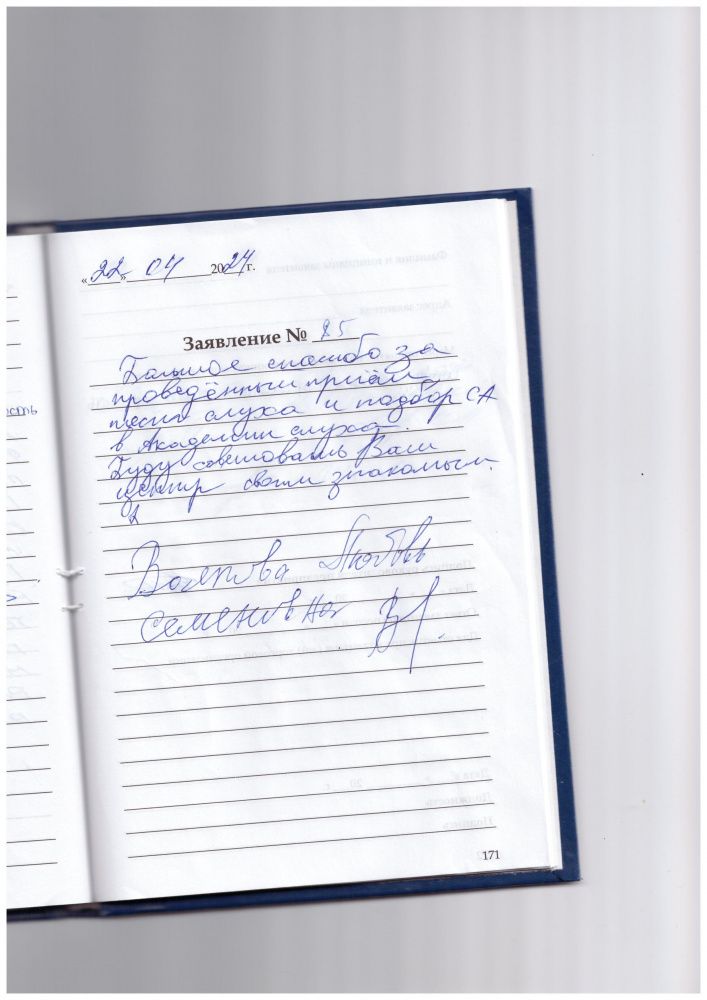 «22» 04 2024 г.
Заявление № 85
Большое спасибо за
проведённый приём
тест слуха и подбор СА
в Академии слуха.
Буду советовать Ваш
центр своим знакомым.
Любовь
Семеновна
171
ость